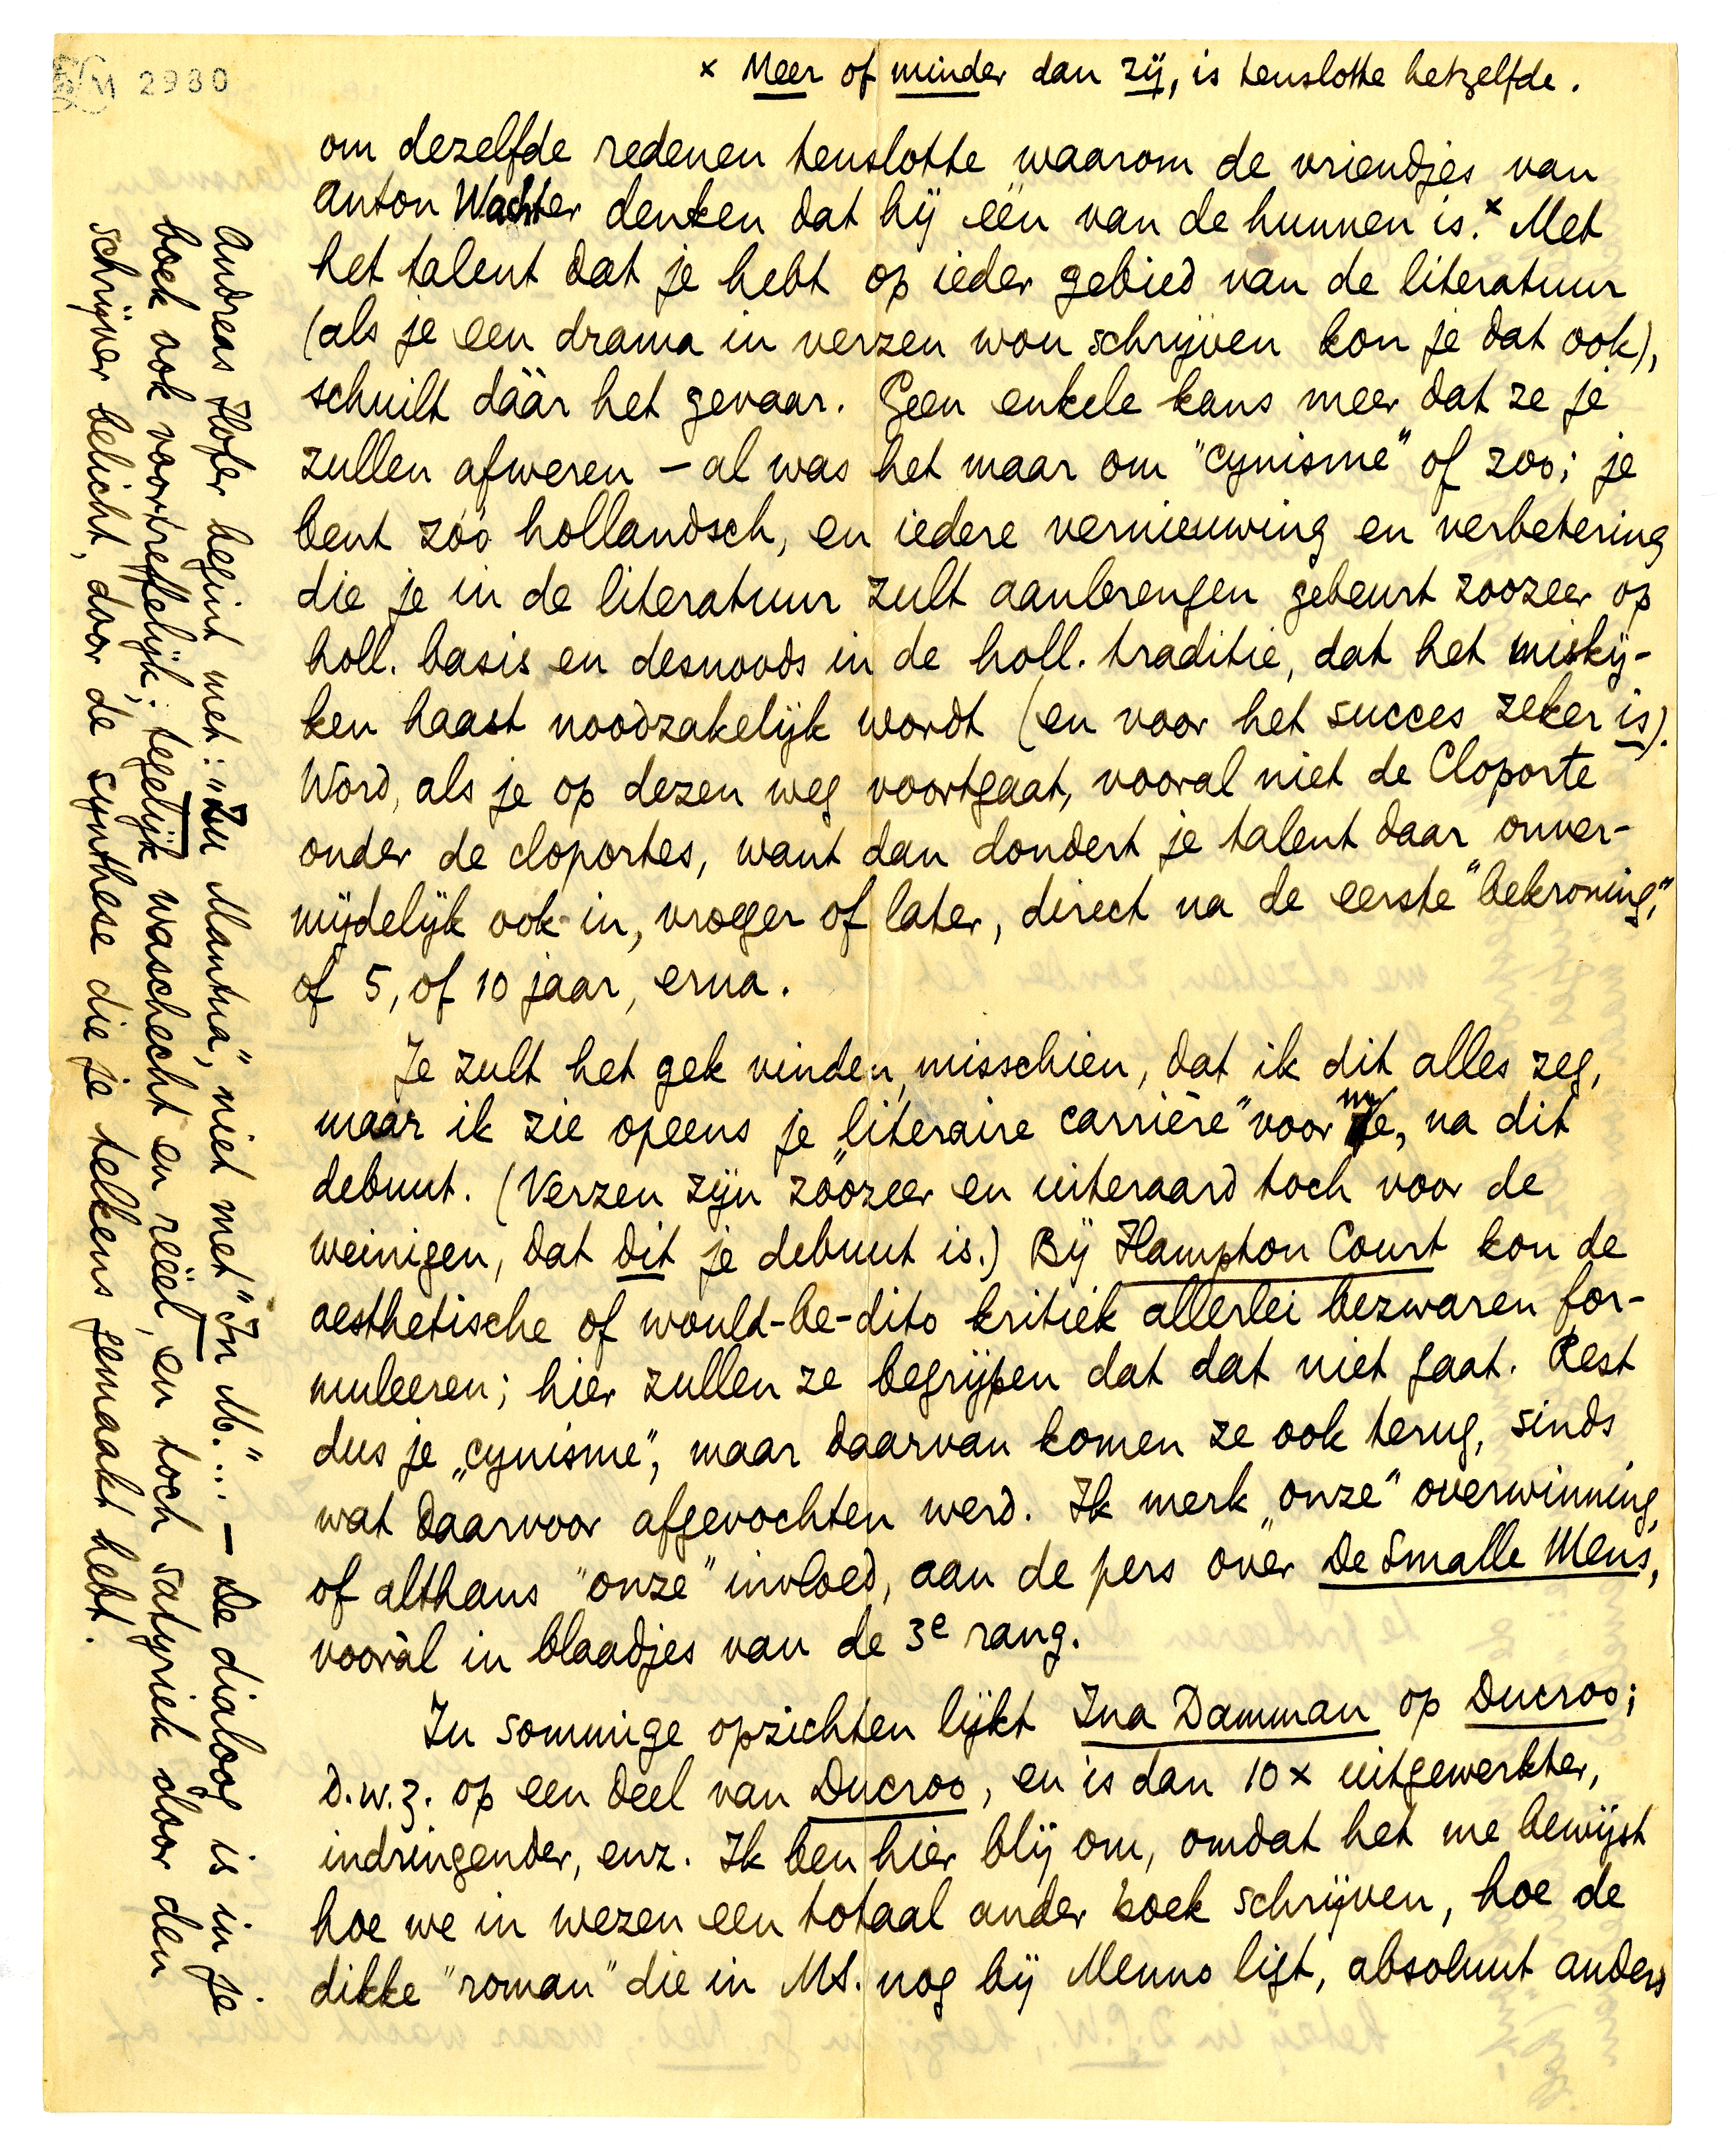 LM 2980
x Meer of minder dan zij, is tenslotte hetzelfde.
om dezelfde redenen tenslotte waarom de vriendjes van
Anton Wachter denken dat hij één van de hunnen is.x Met
het talent dat je hebt op ieder gebied van de literatuur
(als je een drama in verzen wou schrijven kon je dat ook),
schuilt dáár het gevaar. Geen enkele kans meer dat ze je
zullen afweren – al was het maar om "cynisme" of zoo; je
bent zóó hollandsch, en iedere vernieuwing en verbetering
die je in de literatuur zult aanbrengen gebeurt zoozeer op
holl. basis en desnoods in de holl. traditie, dat het miskij-
ken haast noodzakelijk wordt (en voor het succes zeker is).
Word, als je op dezen weg voortgaat, vooral niet de Cloporte
onder de cloportes, want dan dondert je talent daar onver-
mijdelijk ook in, vroeger of later, direct na de eerste "bekroning,"
of 5, of 10 jaar, erna.
Je zult het gek vinden, misschien, dat ik dit alles zeg,
maar ik zie opeens je „literaire carrière" voor me, na dit
debuut. (Verzen zijn zóózeer en uiteraard toch voor de
weinigen, dat dit je debuut is.) Bij Hampton Court kon de
aesthetische of would-be-dito kritiek allerlei bezwaren for-
muleeren; hier zullen ze begrijpen dat dat niet gaat. Rest
dus je „cynisme", maar daarvan komen ze ook terug, sinds
wat daarvoor afgevochten werd. Ik merk „onze" overwinning,
of althans "onze" invloed, aan de pers over De Smalle Mens,
vooràl in blaadjes van de 3e rang.
In sommige opzichten lijkt Ina Damman op Ducroo;
d.w.z. op een deel van Ducroo, en is dan 10 x uitgewerkter,
indringender, enz. Ik ben hier blij om, omdat het me bewijst
hoe we in wezen een totaal ander boek schrijven, hoe de
dikke "roman" die in MS. nog bij Menno ligt, absoluut anders
Andreas Hofer begint met: "Zu Mantua", niet met "In M."... – De dialoog is in je
boek ook voortreffelijk; tegelijk waschecht en reëel, en toch satyriek door den
schrijver belicht, door de synthese die je telkens gemaakt hebt.